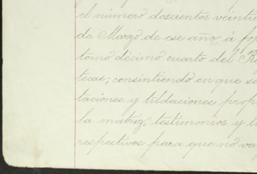 el número doscientos veinti
de Marzo de ese año á fo
tomo décimo cuarto del R
tecas; consintiendo en que se
laciones y tildaciones prop
la matriz, testimonios y
respectivos para que no va